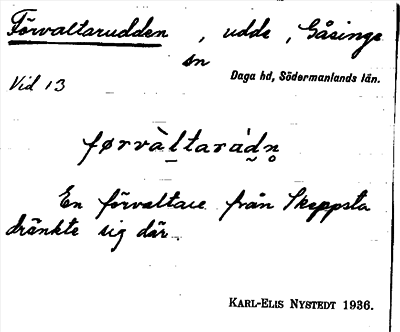 Förvaltarudden , udde , Gåsinge
sn
Daga hd, Södermanlands län.
Vid 13
førvàltaràdn̥
En förvaltare från Skeppsta
dränkte sig där.
KARL-ELIS NYSTEDT 1936.